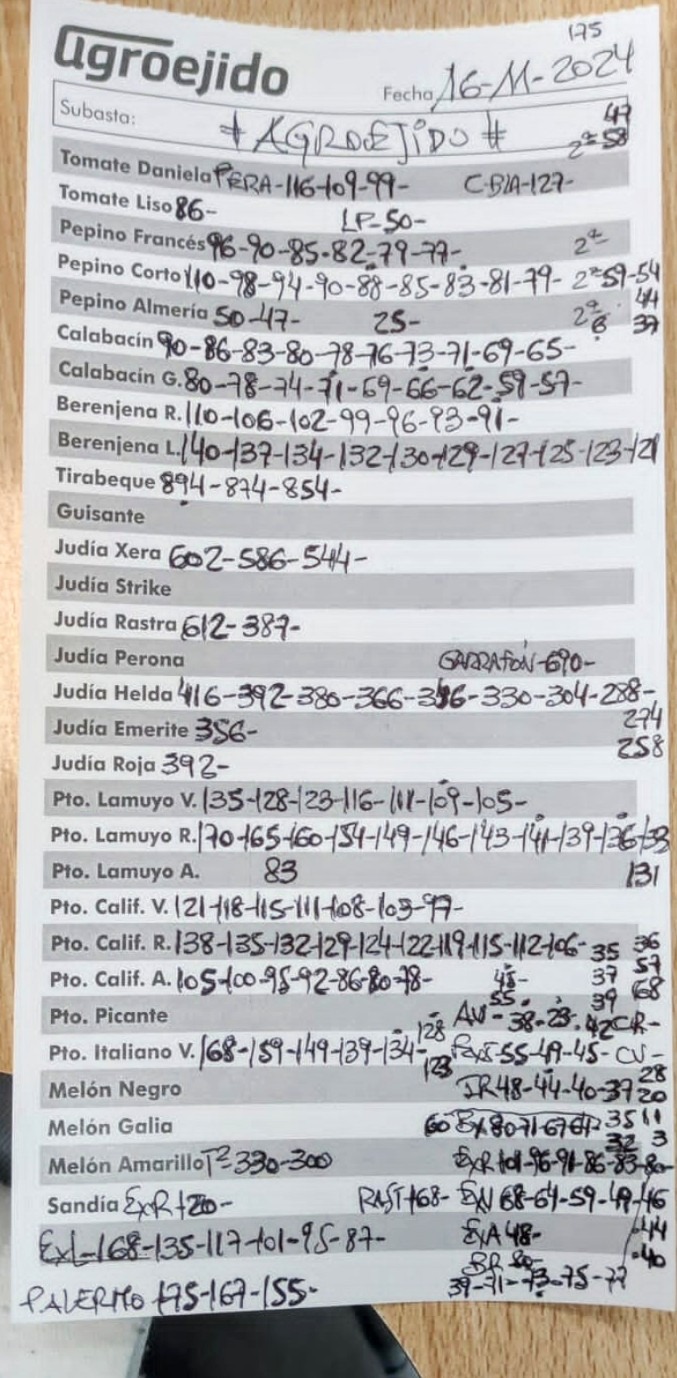 175
agroejido
Fecha 16-11-2024
Subasta: # AGROEJIDO #
47
2ª 58
Tomate Daniela PERA-116-109-99- C-B/A-127-
Tomate Liso 86- LP-50-
Pepino Francés 96-90-85-82-79-77- 2ª
Pepino Corto 110-98-94-90-88-85-83-81-79- 2ª 59-54
44
Pepino Almería 50-47- 25- 2ª 39
Calabacín 90-86-83-80-78-76-73-71-69-65-
Calabacín G. 80-78-74-71-69-66-62-59-57-
Berenjena R. 110-106-102-99-96-93-91-
Berenjena L. 140-137-134-132-130-129-127-125-123-121
Tirabeque 894-874-854-
Guisante
Judía Xera 602-586-544-
Judía Strike
Judía Rastra 612-387-
Judía Perona GARRAFON-690-
Judía Helda 416-392-380-366-346-330-304-288-
274
Judía Emerite 356-
258
Judía Roja 392-
Pto. Lamuyo V. 135-128-123-116-111-109-105-
Pto. Lamuyo R. 170-165-160-154-149-146-143-141-139-136-133
Pto. Lamuyo A. 83 131
Pto. Calif. V. 121-118-115-111-108-103-97-
Pto. Calif. R. 138-135-132-129-124-122-119-115-112-106- 35 36
Pto. Calif. A. 105-100-95-92-86-80-78- 48- 37 57
55 39 68
Pto. Picante AV-38-23- 42 CR-
128
Pto. Italiano V. 168-159-149-139-134- 55-49-45- CV-
123
Melón Negro IR 48-44-40-37 28
20
Melón Galia 60 Bx 80-71-67-61 35 11
32 3
Melón Amarillo Tª 330-300 ExR 101-96-91-86-83-80-
Sandía ExR 120- RAST 168- ExV 68-64-59-49-46
ExL-168-135-117-101-95-87- ExA 48- -44
BR 80- -40
PALERMO 175-167-155- 39-71-73-75-77